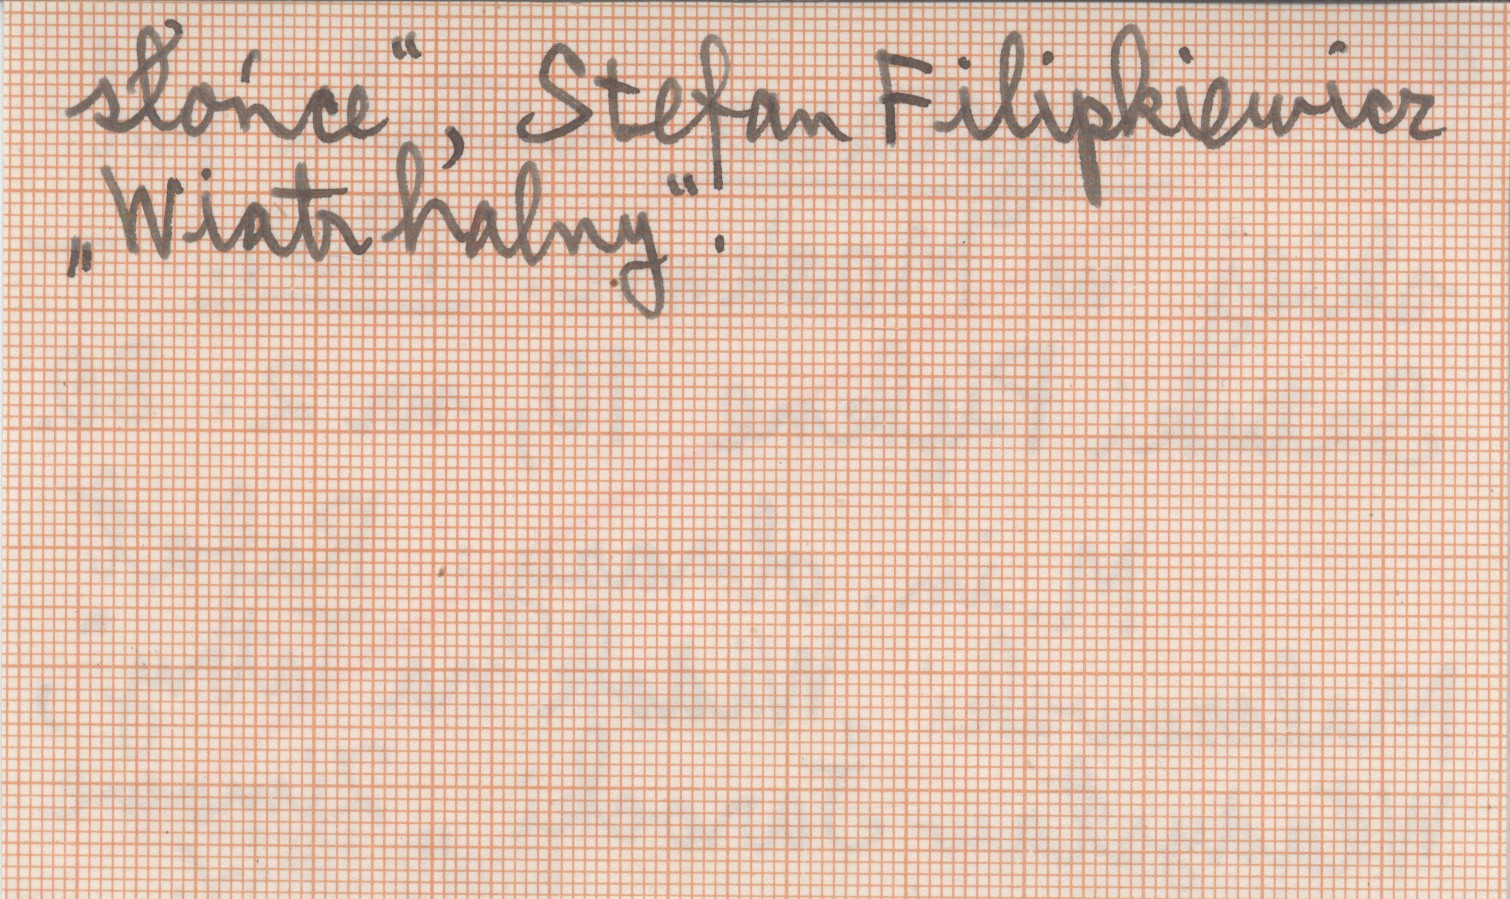 słońce“, Stefan Filipkiewicz
„Wiatr halny“.